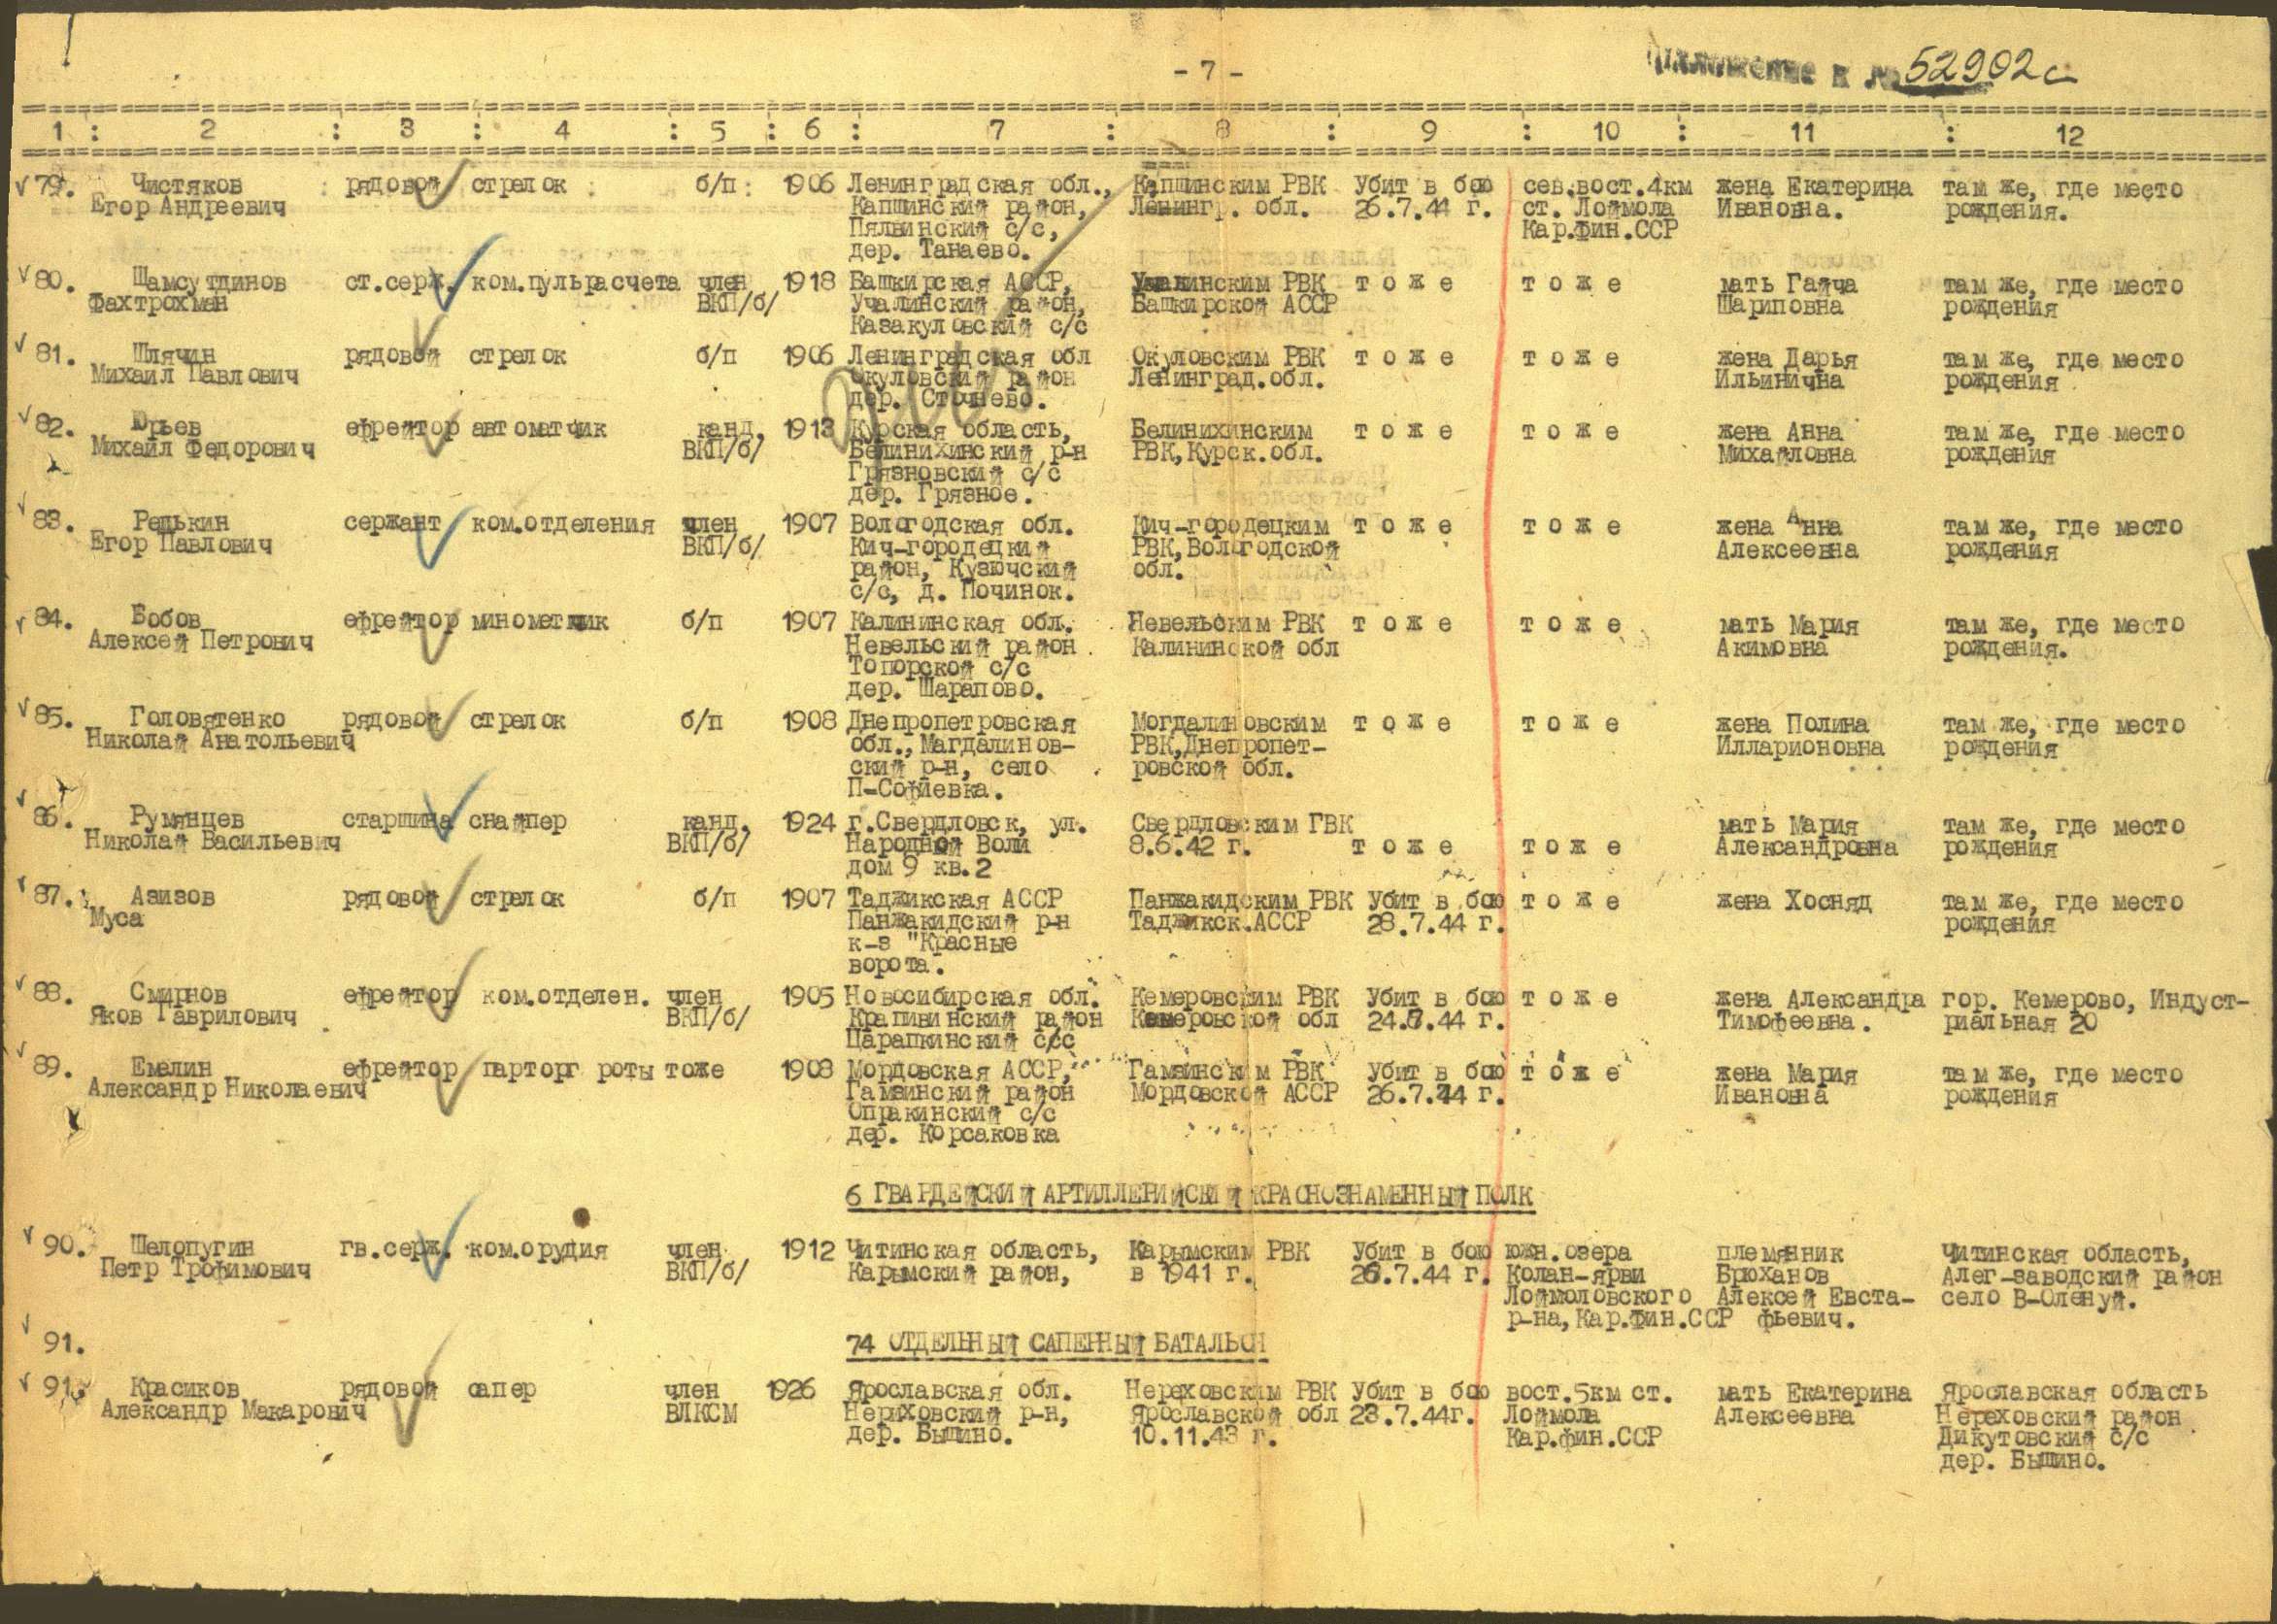 - 7 -
Приложение к № 52902с
1 : 2 : 3 : 4 : 5 : 6 : 7 : 8 : 9 : 10 : 11 : 12
79. Чистяков : рядовой стрелок : б/п : 1906 Ленинградская обл., Капшинским РВК Убит в бою сев.вост.4км жена Екатерина там же, где место
Егор Андреевич Капшинский район, Ленингр. обл. 26.7.44 г. ст. Лоймола Ивановна. рождения.
Пялвинский с/с, Кар.фин.ССР
дер. Танаево.
80. Шамсутдинов ст.серж. ком.пульрасчета член 1918 Башкирская АССР, Учалинским РВК т о ж е т о ж е мать Гайча там же, где место
Фахтрохман ВКП/б/ Учалинский район, Башкирской АССР Шариповна рождения
Казакуловский с/с
81. Шлячин рядовой стрелок б/п 1906 Ленинградская обл Окуловским РВК т о ж е т о ж е жена Дарья там же, где место
Михаил Павлович Окуловский район Ленинград.обл. Ильинична рождения
дер. Сточнево.
82. Юрьев ефрейтор автоматчик канд. 1913 Курская область, Белинихинским т о ж е т о ж е жена Анна там же, где место
Михаил Федорович ВКП/б/ Белинихинский р-н РВК,Курск.обл. Михайловна рождения
Грязновский с/с
дер. Грязное.
83. Редькин сержант ком.отделения член 1907 Вологодская обл. Кич-городецким т о ж е т о ж е жена Анна там же, где место
Егор Павлович ВКП/б/ Кич-городецкий РВК,Вологодской Алексеевна рождения
район, Кузючский обл.
с/с, д. Починок.
84. Бобов ефрейтор минометчик б/п 1907 Калининская обл. Невельским РВК т о ж е т о ж е мать Мария там же, где место
Алексей Петрович Невельский район Калининской обл Акимовна рождения.
Топорской с/с
дер. Шарапово.
85. Головятенко рядовой стрелок б/п 1908 Днепропетровская Могдалиновским т о ж е т о ж е жена Полина там же, где место
Николай Анатольевич обл., Магдалинов- РВК,Днепропет- Илларионовна рождения
ский р-н, село ровской обл.
П-Софиевка.
86. Румянцев старшина снайпер канд. 1924 г.Свердловск, ул. Свердловским ГВК мать Мария там же, где место
Николай Васильевич ВКП/б/ Народной Воли 8.6.42 г. т о ж е т о ж е Александровна рождения
дом 9 кв.2
87. Азизов рядовой стрелок б/п 1907 Таджикская АССР Панжакидским РВК Убит в бою т о ж е жена Хосняд там же, где место
Муса Панжакидский р-н Таджикск.АССР 28.7.44 г. рождения
к-з "Красные
ворота.
88. Смирнов ефрейтор ком.отделен. член 1905 Новосибирская обл. Кемеровским РВК Убит в бою т о ж е жена Александра гор. Кемерово, Индуст-
Яков Гаврилович ВКП/б/ Крапивинский район Кемеровской обл 24.7.44 г. Тимофеевна. риальная 20
Царапкинский с/с
89. Емалин ефрейтор парторг роты тоже 1908 Мордовская АССР, Гамзинским РВК Убит в бою т о ж е жена Мария там же, где место
Александр Николаевич Гамзинский район Мордовской АССР 26.7.44 г. Ивановна рождения
Опракинский с/с
дер. Корсаковка
6 ГВАРДЕЙСКИЙ АРТИЛЛЕРИЙСКИЙ КРАСНОЗНАМЕННЫЙ ПОЛК
90. Шелопугин гв.серж. ком.орудия член 1912 Читинская область, Карымским РВК Убит в бою южн.озера племянник Читинская область,
Петр Трофимович ВКП/б/ Карымский район, в 1941 г. 26.7.44 г. Колан-ярви Брюханов Алег-заводский район
Лоймоловского Алексей Евста- село В-Оленуй.
р-на,Кар.фин.ССР фьевич.
91. 74 ОТДЕЛЬНЫЙ САПЕРНЫЙ БАТАЛЬОН
91. Красиков рядовой сапер член 1926 Ярославская обл. Нереховским РВК Убит в бою вост.5км ст. мать Екатерина Ярославская область
Александр Макарович ВЛКСМ Нериховский р-н, Ярославской обл 23.7.44г. Лоймола Алексеевна Нереховский район
дер. Бышино. 10.11.43 г. Кар.фин.ССР Дикутовский с/с
дер. Бышино.